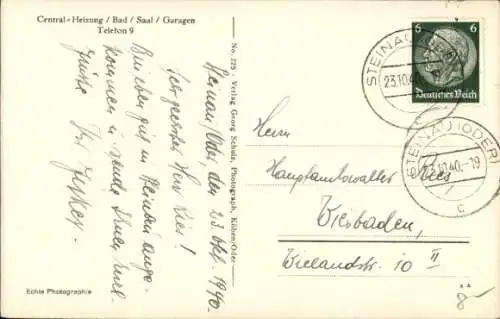 Central-Heizung / Bad / Saal / Garagen
Telefon 9
Steinau, Oder, den 23. Okt. 1940.
Sehr geehrter Herr Ries!
Bin eben gut in Steinau ange-
kommen u. sende Ihnen viel
Grüße Ihr
Echte Photographie
No. 225 - Verlag Georg Schulz, Photograph, Köben/Oder
6 6
Deutsches Reich
STEINAU (ODER)
23.10.40
STEINAU (ODER)
23.10.40.-19
c
Herrn
Hauptamtswalter Ries
Wiesbaden,
Wielandstr. 10 II